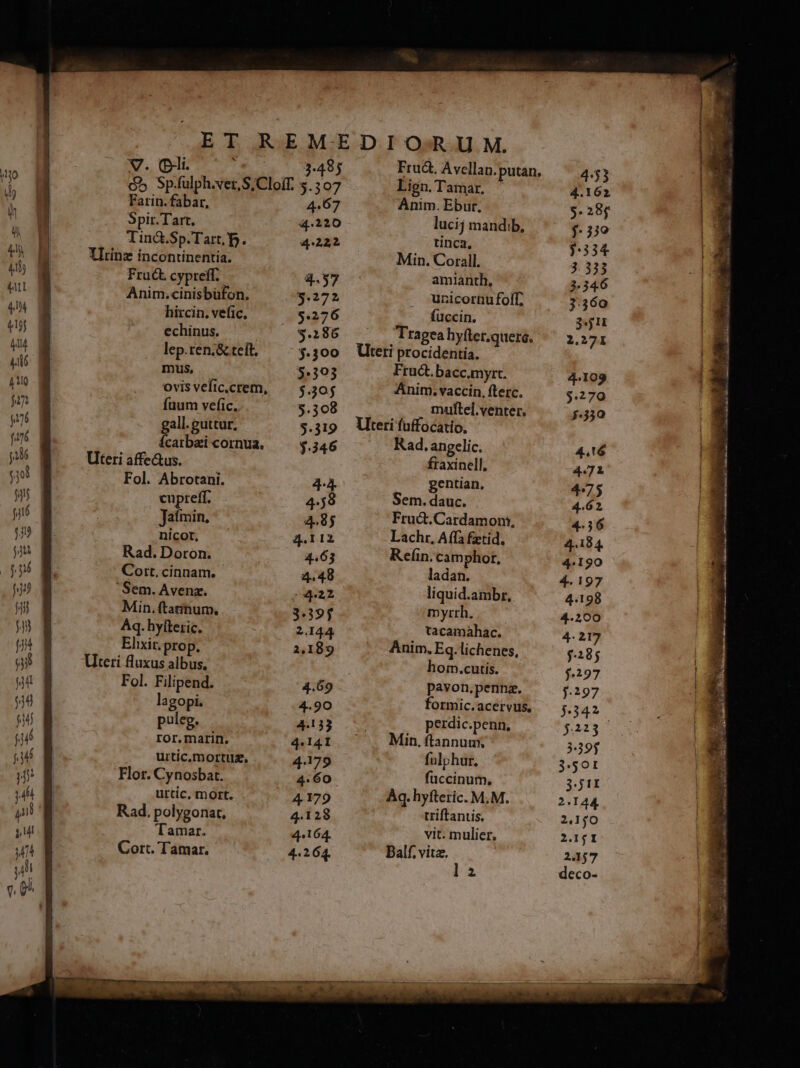 ET REMEDIORUM.
V. Gli. 3.485
& Sp.ſulph.ver,S,Cloſſ. 5.307
Farin.fabar, 4.67
Spir.Tart. 4.220
Tinct.Sp.Tart. ♄. 4.222
Urinæ incontinentia.
Fruct. cypreſſ. 4.57
Anim.cinisbufon. 5.272
hircin. veſic, 5.276
echinus. 5.286
lep.ren.& teſt. 5.300
mus, 5.303
ovis veſic.crem, 5.305
ſuum veſic. 5.308
gall.guttur. 5.319
ſcarbæi cornua. 5.346
Uteri affectus.
Fol. Abrotani. 4.4
cupreſſ. 4.58
Jaſmin, 4.85
nicot, 4.112
Rad. Doron. 4.63
Cort, cinnam. 4.48
Sem. Avenæ. 4.22
Min.ſtannum. 3.395
Aq. hyſteric. 2.144
Elixir, prop. 2,189
Uteri fluxus albus.
Fol. Filipend. 4.69
lagopi. 4.90
puleg. 4.133
ror.marin. 4.141
urtic.mortuæ, 4.179
Flor. Cynosbat. 4.60
urtic, mort. 4.179
Rad. polygonat, 4.128
Tamar. 4.164
Cort. Tamar. 4.264
Fruct. Avellan.putan, 4.53
Lign. Tamar. 4.162
Anim. Ebur. 5.285
lucij mandib, 5.330
tinca. 5.334
Min. Corall. 3.333
amianth, 3.346
unicornufoſſ, 3.360
ſuccin. 3.511
Tragea hyſter.querc. 2.271
Uteri procidentia.
Fruct.bacc.myrt. 4.109
Anim. vaccin, ſterc. 5.270
muſtel.venter. 5.330
Uteri ſuffocatio.
Rad. angelic. 4.16
fraxinell. 4.72
gentian, 4.75
Sem. dauc. 4.62
Fruct.Cardamom, 4.36
Lachr, Aſſa fætid, 4.184
Reſin. camphor, 4.190
ladan. 4.197
liquid.ambr, 4.198
myrrh. 4.200
tacamahac. 4.217
Anim. Eq. lichenes, 5.285
hom.cutis. 5.297
pavon.pennæ. 5.297
formic.acervus, 5.342
perdic.penn, 5.223
Min, ſtannum, 3.395
ſulphur. 3.501
ſuccinum, 3.511
Aq. hyſteric. M.M. 2.144
triſtantis. 2,150
vit. mulier, 2.151
Balſ. vitæ. 2.157
l 2 deco-